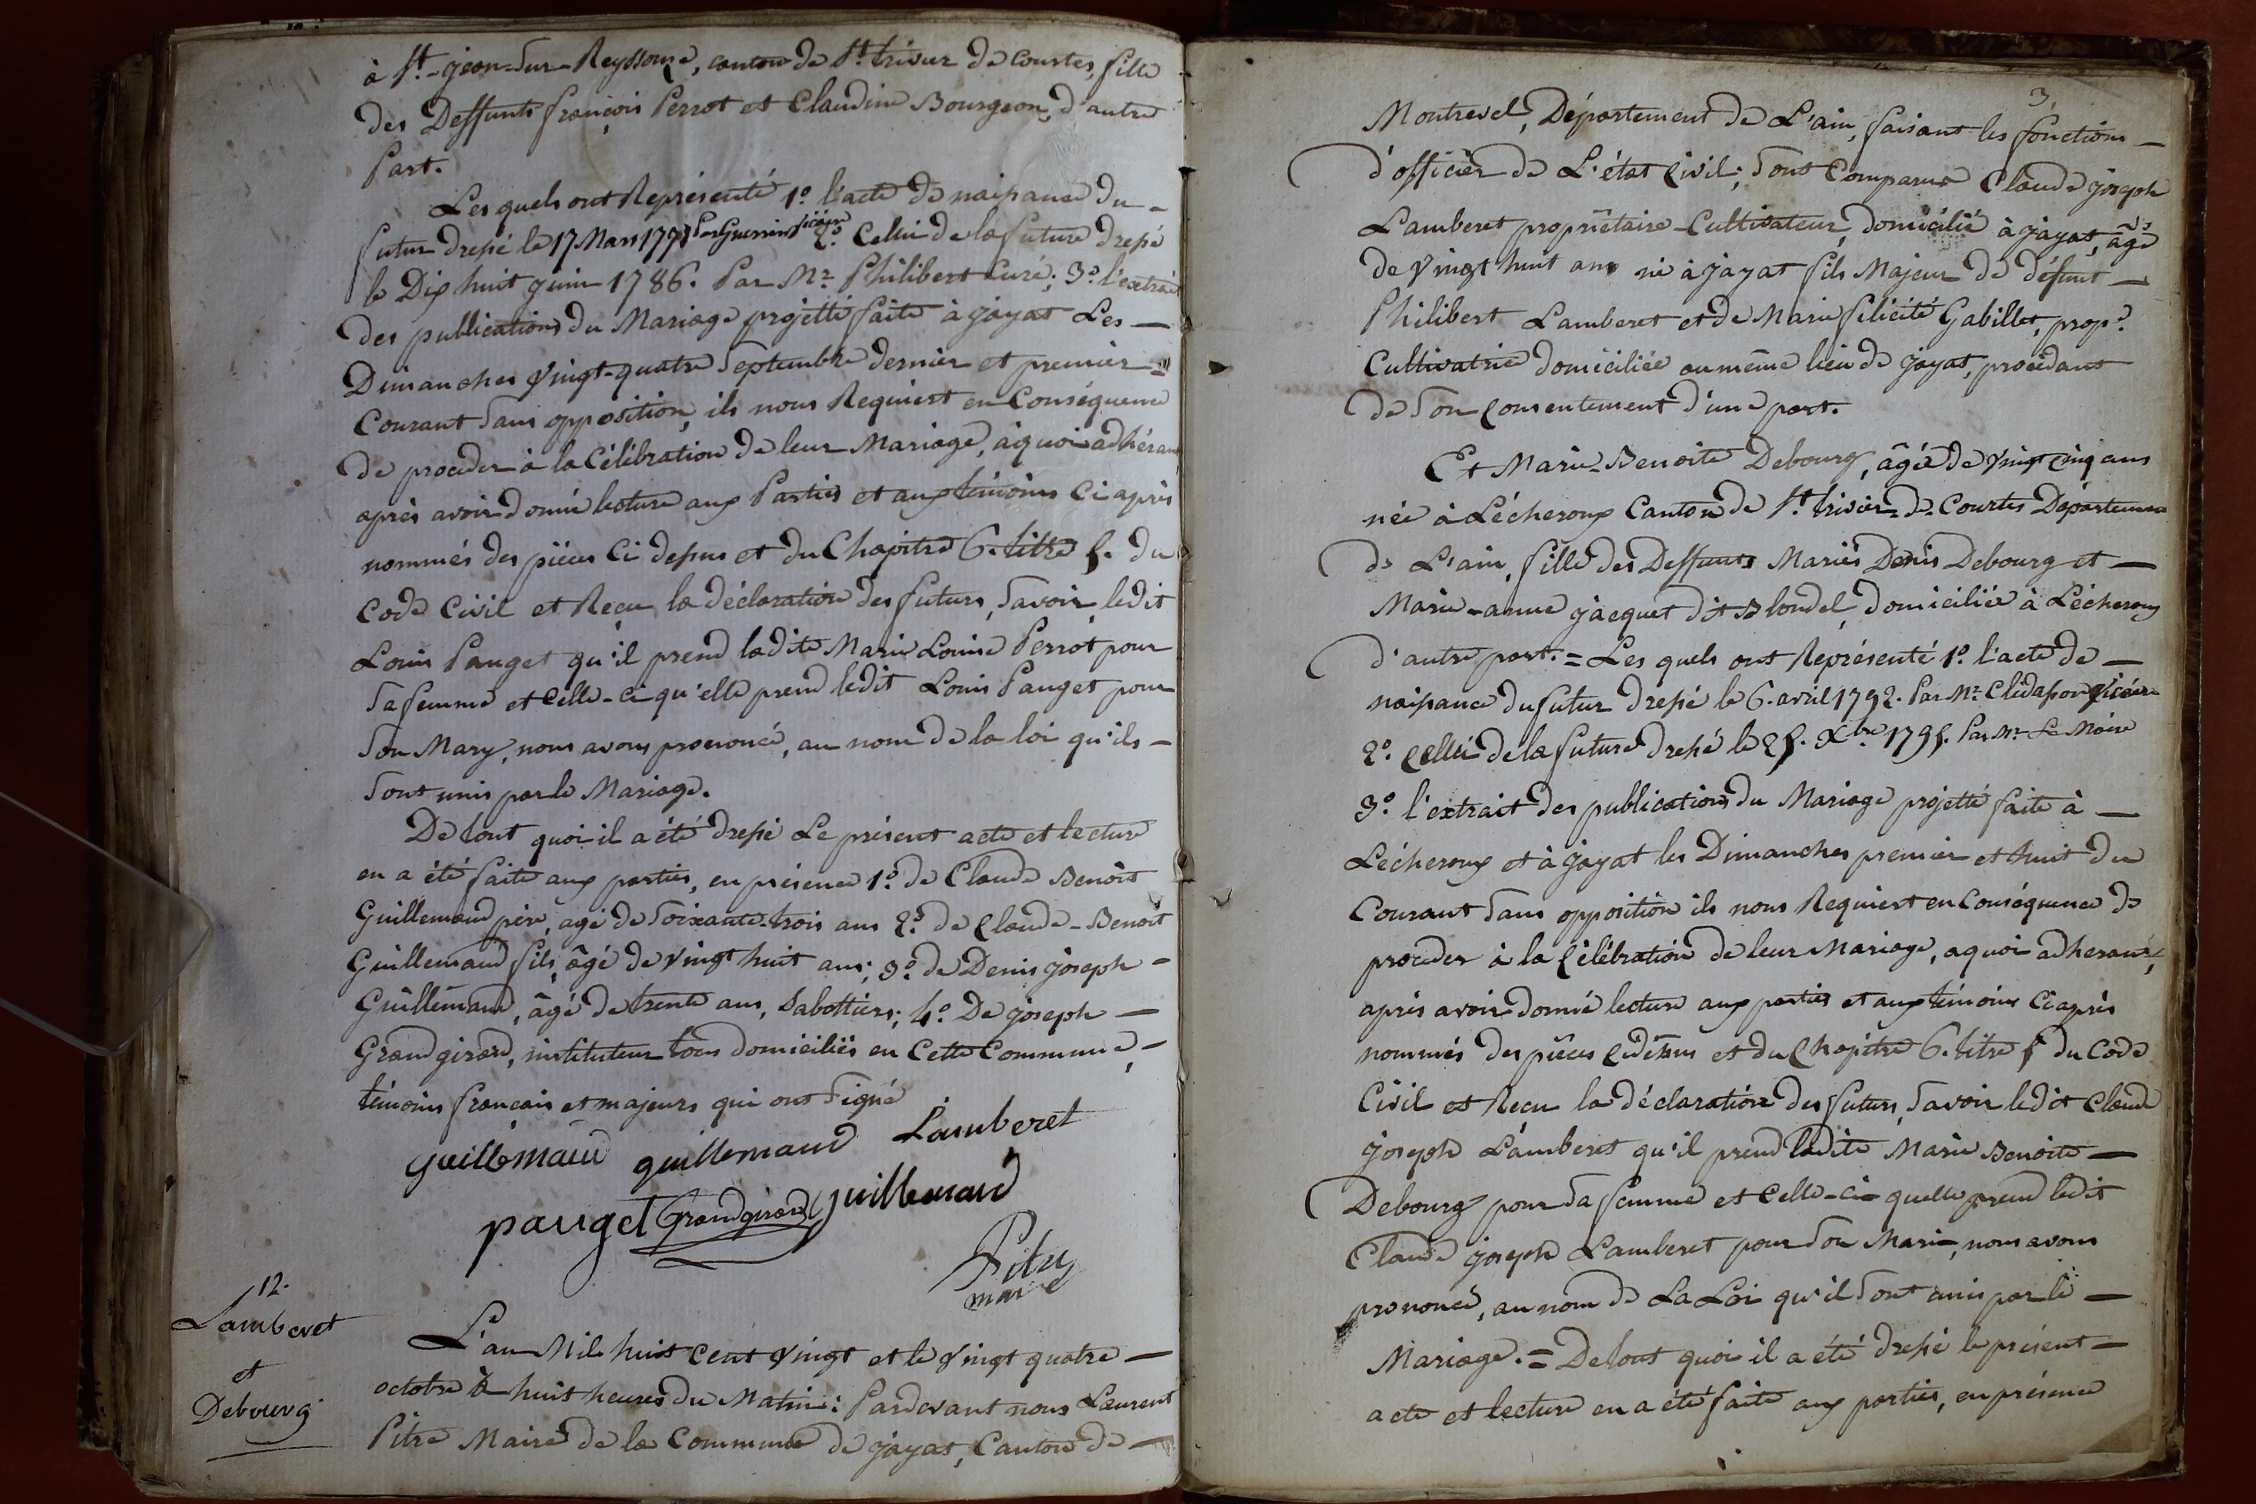 à St. jean-sur-Reyssouze, canton de St. trivier de Courtes, fille
des Deffunts françois Perrot et Claudine Bourgeon, d'autre
Part.
Les quels ont Représenté 1.º l'acte de naissance du
futur dressé le 17 Mars 1791 Par Guerrin vicaire 2.º Cellui de la future dressé
le Dix huit juin 1786. Par Mr. Philibert Curé; 3.º l'extrait
des publications du Mariage projetté faite à jayat Les
Dimanches vingt-quatre Septembre dernier et premier
Courant sans opposition, ils nous Requiert en Conséquence
de procéder à la Célébration de leur Mariage, àquoi adhérant
après avoir donné lecture aux Parties et aux témoins Ci après
nommés des pièces Ci dessus et du Chapitre 6. titre 5. du
Code Civil et Reçu la déclaration des futurs, Savoir ledit
Louis Pauget qu'il prend ladite Marie Louise Perrot pour
Sa femme et Celle-ci qu'elle prend ledit Louis Pauget pour
Son Mary, nous avons prononcé, au nom de la loi qu'ils
Sont unis par le Mariage.
De tout quoi il a été dressé Le présent acte et lecture
en a été faite aux parties, en présence 1.º de Claude Benoit
Guillemaud père, agé de Soixante-trois ans 2.º de Claude-Benoit
Guillemaud fils, âgé de vingt huit ans; 3.º de Denis joseph
Guillemaud, âgé de trente ans, Sabottiers; 4.º De joseph
Grandgirard, instituteur tous domiciliés en Cette Commune,
témoins français et majeurs qui ont Signé
guillemaud guillemaud Lamberet
pauget Grandgirard guillemaud
Pitre
maire
12.
Lamberet
et
Debourg
L'an Mil huit Cent vingt et le vingt quatre
octobre à huit heures du Matin: Pardevant nous Laurent
Pitre Maire de la Commune de jayat, Canton de
3.
Montrevel, Département de L'ain, faisant les fonctions
d'officier de L'état Civil; Sont Comparus Claude joseph
Lamberet propriétaire-Cultivateur, domicilié à jayat, âgé
de vingt huit ans né à jayat fils Majeur de défunt
Philibert Lamberet et de Marie félicité Gabillet, prop.re
Cultivatrice domiciliée au même lieu de jayat, procédant
de Son Consentement d'une part.
Et Marie-Benoite Debourg, âgée de vingt cinq ans
née à Lécheroux Canton de St. trivier-de-Courtes Département
de L'ain, fille des Deffunts Mariés Denis Debourg et
Marie-anne jacquet dit Blondel, domiciliée à Lécheroux
d'autre part. = Les quels ont Représenté 1.º l'acte de
naissance du futur dressé le 6. avril 1792. Par Mr. vicaire
2.º Cellui de la future dressé le 25. Xbre 1795. Par Mr. Le Maire
3.º l'extrait des publications du Mariage projetté faite à
Lécheroux et à jayat les Dimanches premier et huit du
Courant sans opposition ils nous Requiert en Conséquence de
procéder à la Célébration de leur Mariage, aquoi adherant,
après avoir donné lecture aux parties et aux témoins Ci après
nommés des pièces Cidessus et du Chapitre 6. titre 5 du Code
Civil et Reçu la déclaration des futurs, Savoir ledit Claude
joseph Lamberet qu'il prend ladite Marie Benoite
Debourg pour Sa femme et Celle-ci quelle prend ledit
Claude joseph Lamberet pour Son Mari, nous avons
prononcé, au nom de La Loi qu'il Sont unis par le
Mariage. = De tout quoi il a été dressé le présent
acte et lecture en a été faite aux parties, en présence